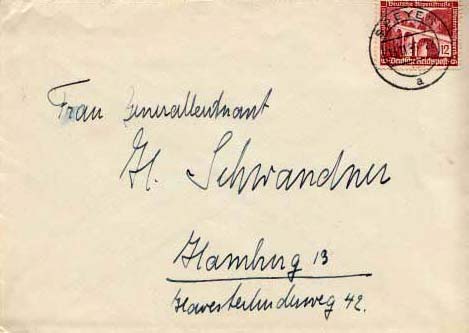 Deutsche Alpenstraße
12
Deutsche Reichspost
a
Frau Generalleutnant
H. Schwandner
Hamburg 13
Harvesterhudeweg 42.